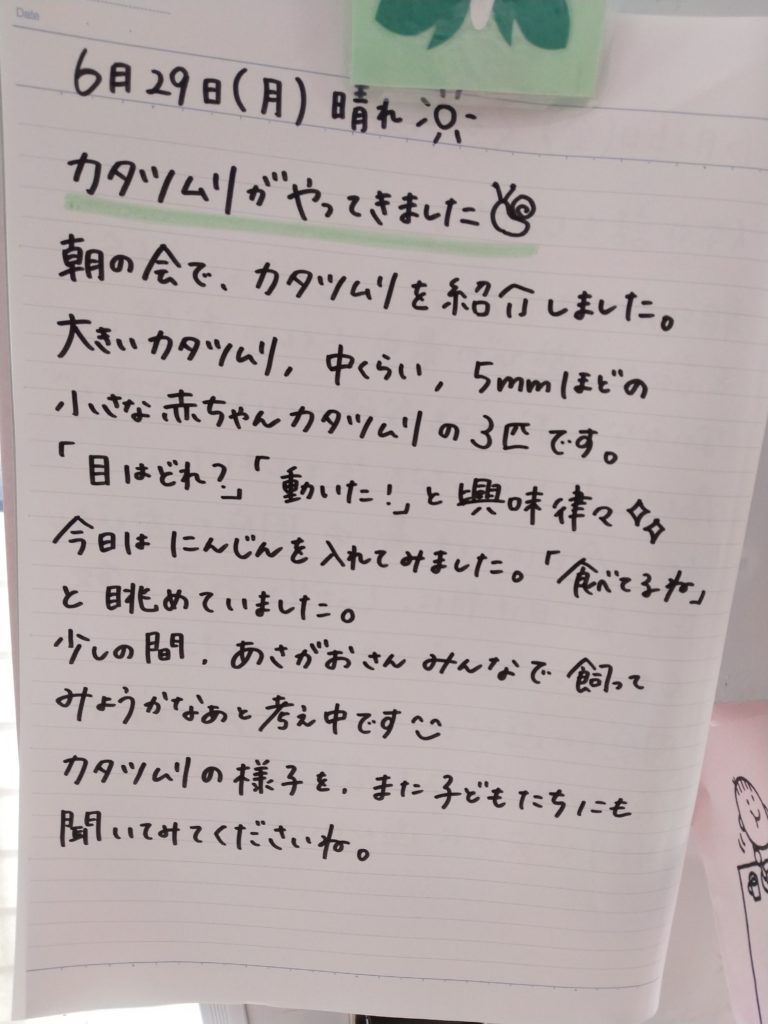 Date
6月29日(月) 晴れ
カタツムリがやってきました
朝の会で、カタツムリを紹介しました。
大きいカタツムリ, 中くらい, 5mmほどの
小さな赤ちゃんカタツムリの3匹です。
「目はどれ?」「動いた!」と興味律々
今日は にんじんを入れてみました。「食べてるね」
と眺めていました。
少しの間, あさがおさん みんなで 飼って
みようかなぁと考え中です
カタツムリの様子を, また子どもたちにも
聞いてみてくださいね。